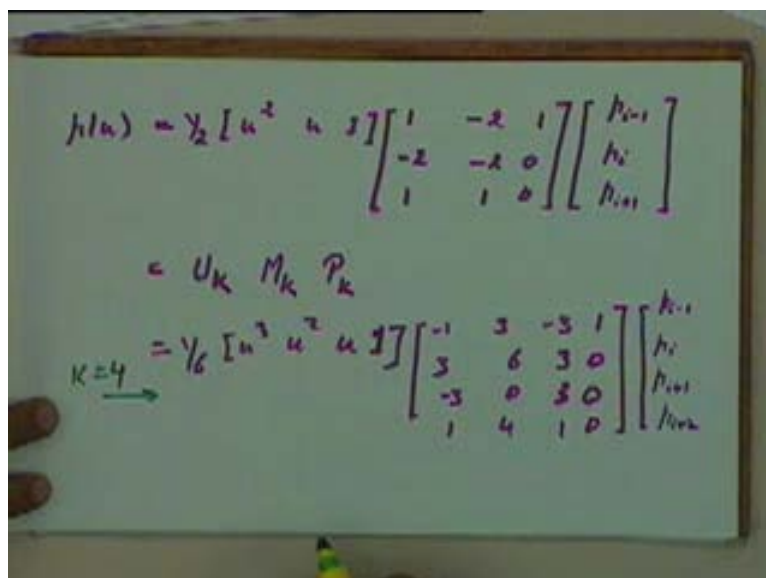 p(u) = 1/2 [u² u 1] [1 -2 1; -2 -2 0; 1 1 0] [p_{i-1}; p_i; p_{i+1}]
= U_k M_k P_k
K=4 → = 1/6 [u³ u² u 1] [-1 3 -3 1; 3 6 3 0; -3 0 3 0; 1 4 1 0] [p_{i-1}; p_i; p_{i+1}; p_{i+2}]